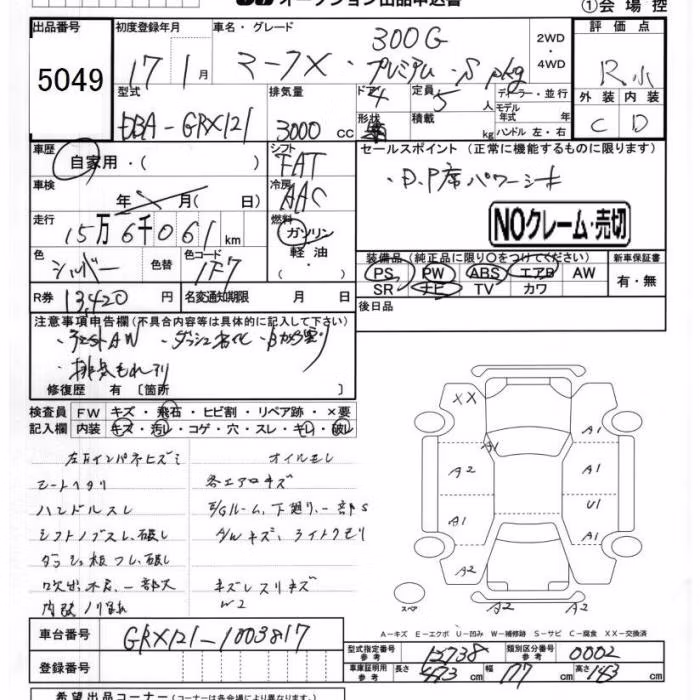 オークション出品申込書
①会場控
出品番号
5049
初度登録年月
17 1月
車名・グレード
300G
マークX・プレミアム・S pkg
2WD
4WD
評価点
R
外装 内装
C D
型式
DBA-GRX121
排気量
3000 cc
ドア
4
形状
定員
5人
積載
kg
ディーラー・並行
モデル
年式 年
ハンドル 左・右
車歴
自家用・( )
シフト
FAT
冷房
AAC
燃料
ガソリン
軽油
・
車検
年 月( 日)
走行
15万6千061km
色
シルバー
色替
色コード
1F7
R券
13,420円
名変通知期限 月 日
セールスポイント (正常に機能するものに限ります)
・D.P席パワーシート
NOクレーム・売切
装備品 (純正品に限り○をつけてください)
PS PW ABS エアB AW
SR ナビ TV カワ
新車保証書
有・無
後日品
注意事項申告欄(不具合内容等は具体的に記入して下さい)
修復歴 有 〔箇所 〕
検査員
記入欄
FW キズ・飛石・ヒビ割・リペア跡・×要
内装 キズ・汚レ・コゲ・穴・スレ・キレ・破レ
オイルモレ
シートヘタリ
ハンドルスレ
各エアロキズ
E/Gルーム、下廻り、一部S
シフトノブスレ、破レ
A/Wキズ、ライトクモリ
W2
XX
A1
A2
A1
A2
A2
U1
A1
A1
A2
A2
スペア
A-キズ E-エクボ U-凹み W-補修跡 S-サビ C-腐食 XX-交換済
車台番号
GRX121-1003817
登録番号
型式指定番号
参考
12738
類別区分番号
参考
0002
車庫証明用
参考
長さ 473cm 幅 177cm 高さ 143cm
希望出品コーナー(コーナー名は各会場により異なります)